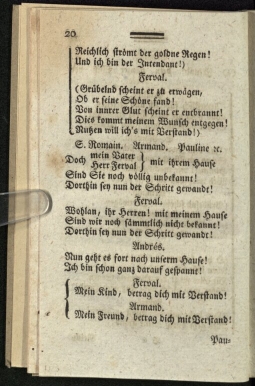 20
Reichlich strömt der goldne Regen!
Und ich bin der Intendant!)
Ferval.
(Grübelnd scheint er zu erwägen,
Ob er seine Schöne fand!
Von innrer Glut scheint er entbrannt!
Dies kommt meinem Wunsch entgegen!
Nutzen will ich's mit Verstand!)
S. Romain. Armand. Pauline ꝛc.
Doch mein Vater / Herr Ferval } mit ihrem Hause
Sind Sie noch völlig unbekannt!
Dorthin sey nun der Schritt gewandt!
Ferval.
Wohlan, ihr Herren! mit meinem Hause
Sind wir noch sämmtlich nicht bekannt!
Dorthin sey nun der Schritt gewandt!
Andrés.
Nun geht es fort nach unserm Hause!
Ich bin schon ganz darauf gespannt!
Ferval.
Mein Kind, betrag dich mit Verstand!
Armand.
Mein Freund, betrag dich mit Verstand!
Pau-